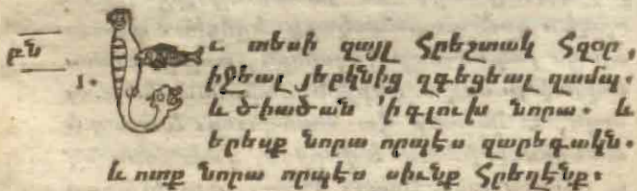 1. Եւ տեսի զայլ հրեշտակ հզօր,
իջեալ յերկնից զգեցեալ զամպ.
և ծիածան 'ի գլուխ նորա. և
երեսք նորա որպէս զարեգակն.
և ոտք նորա որպէս սիւնք հրեղէնք։